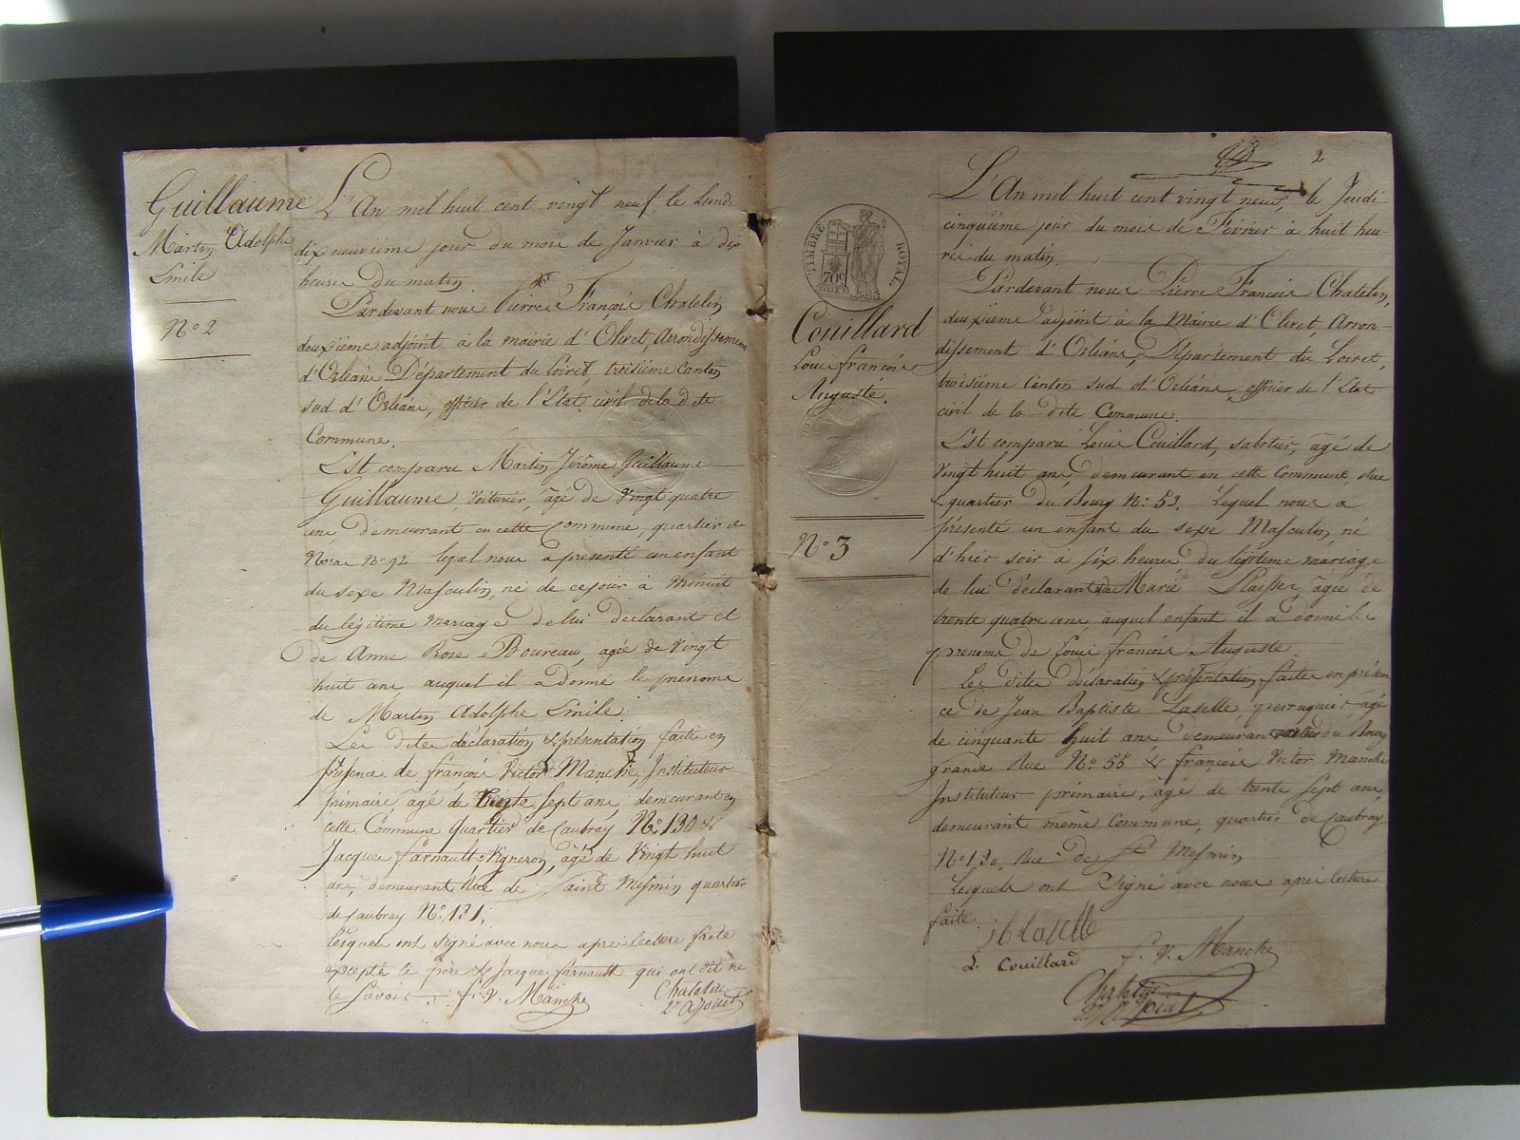 Guillaume
Martin Adolphe
Emile
N° 2
L'An mil huit cent vingt neuf le Lundi
dix neuvieme jour du mois de Janvier à dix
heures du matin
Pardevant nous Pierre François Chatelin
deuxième adjoint à la mairie d'Olivet, Arrondissement
d'Orléans Département du Loiret, troisième Canton
sud d'Orléans, officier de l'Etat civil de la dite
Commune.
Est comparu Martin Jérôme Guillaume
Guillaume, Voiturier, âgé de Vingt quatre
ans, demeurant en cette Commune, quartier de
N° 92 lequel nous a présenté un enfant
du sexe Masculin, né de ce jour à Minuit
du légitime Mariage de lui déclarant et
de Anne Rose Boureau, agée de Vingt
huit ans, auquel il a donné le prénoms
de Martin Adolphe Emile.
Les dites déclaration & présentation faite en
présence de françois Victor Manche, Instituteur
primaire, agé de trente sept ans, demeurant en
cette Commune quartier de Caubray N° 130 &
Jacques farnault, Vigneron, âgé de Vingt huit
ans, demeurant Rue de Saint Mesmin quartier
de Caubray N° 131.
Lesquels ont signé avec nous apres lecture faite
excepté le père & Jacques farnault qui ont dit ne
le savoir. f. V. Manche
Chatelin
2e adjoint
2
TIMBRE ROYAL
70c
Couillard
Louis françois
Auguste.
N° 3
L'An mil huit cent vingt neuf, le Jeudi
cinquième jour du mois de Février à huit heu-
res du matin.
Pardevant nous Pierre François Chatelin,
deuxième adjoint à la Mairie d'Olivet Arron-
dissement d'Orléans, Département du Loiret,
troisième Canton sud d'Orléans, officier de l'Etat
civil de la dite Commune.
Est comparu Louis Couillard, sabotier, âgé de
Vingt huit ans, demeurant en cette Commune, rue
quartier du Bourg N° 53. Lequel nous a
présenté un enfant du sexe Masculin, né
d'hier soir à six heures, du légitime mariage
de lui déclarant & de Marie âgée de
trente quatre ans, auquel enfant il a donné les
prenoms de Louis françois Auguste.
Les dites déclaration & présentation faites en présen
ce de Jean Baptiste Laselle, perruquier, agé
de cinquante huit ans demeurant du Bourg
grande Rue N° 55 & françois Victor Manche
Instituteur primaire, âgé de trente sept ans,
demeurant même Commune, quartier de Caubray
N° 130 Rue de St Mesmin
Lesquels ont Signé avec nous apres lecture
faite.
jb laselle
L. Couillard f. V. Manche
Chatelin
2e adjoint